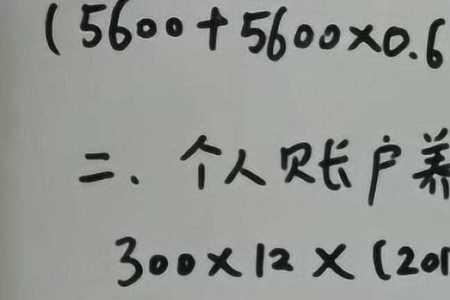 (5600+5600×0.6
二、个人账户养
300×12×(201